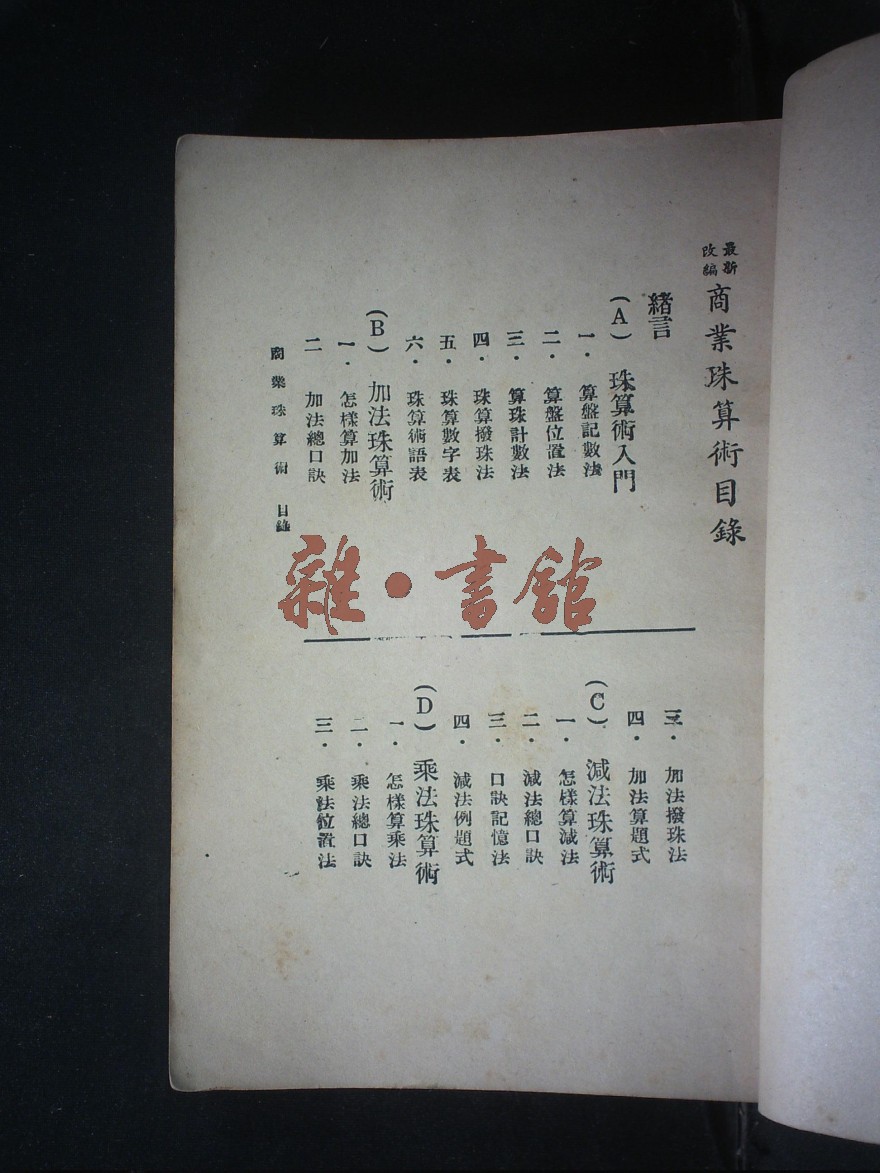 最新改編
商業珠算術目錄
緒言
(A) 珠算術入門
一．算盤記數法
二．算盤位置法
三．算珠計數法
四．珠算撥珠法
五．珠算數字表
六．珠算術語表
(B) 加法珠算術
一．怎樣算加法
二 加法總口訣
三．加法撥珠法
四．加法算題式
(C) 減法珠算術
一．怎樣算減法
二．減法總口訣
三．口訣記憶法
四．減法例題式
(D) 乘法珠算術
一．怎樣算乘法
二．乘法總口訣
三．乘法位置法
商業珠算術 目錄
雜·書館